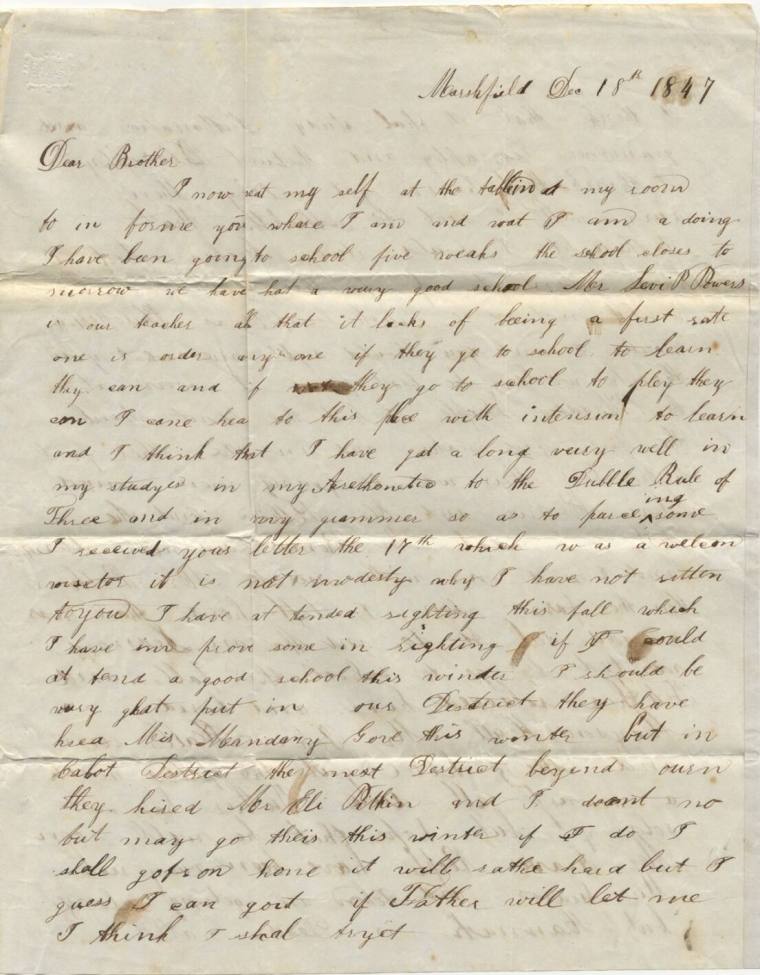 Marshfield Dec 18th 1847
Dear Brother
I now seat my self at the table in at my room
to in forme you whare I am and wat I am a doing
I have been going to school five weaks the school closes to
morrow we have hat a very good school Mr Levi P Powers
is our teacher all that it lacks of beeing a first rate
one is order any one if they go to school to learn
they can and if they go to school to pley they
can I came hea to this place with intension to learn
and I think that I have got a long veery well in
my studyes in my Arethmetic to the Dubble Rule of
Three and in my grammer so as to parceing some
I received your letter the 17th which w as a welcom
visetor it is not modesty why I have not ritten
to you I have at tended righting this fall which
I have im prove some in righting if I could
at tend a good school this winter I should be
very glat put in our Destrict they have
hiea Mis Mandany Gove this wonter but in
Cabot Destrict the next Destrict beyend ourn
they hired Mr Eli Pitkin and I doant no
but may go theis this winter if I do I
shall go from home it will rathe hard but I
guess I can goit if Father will let me
I think I shal tryet